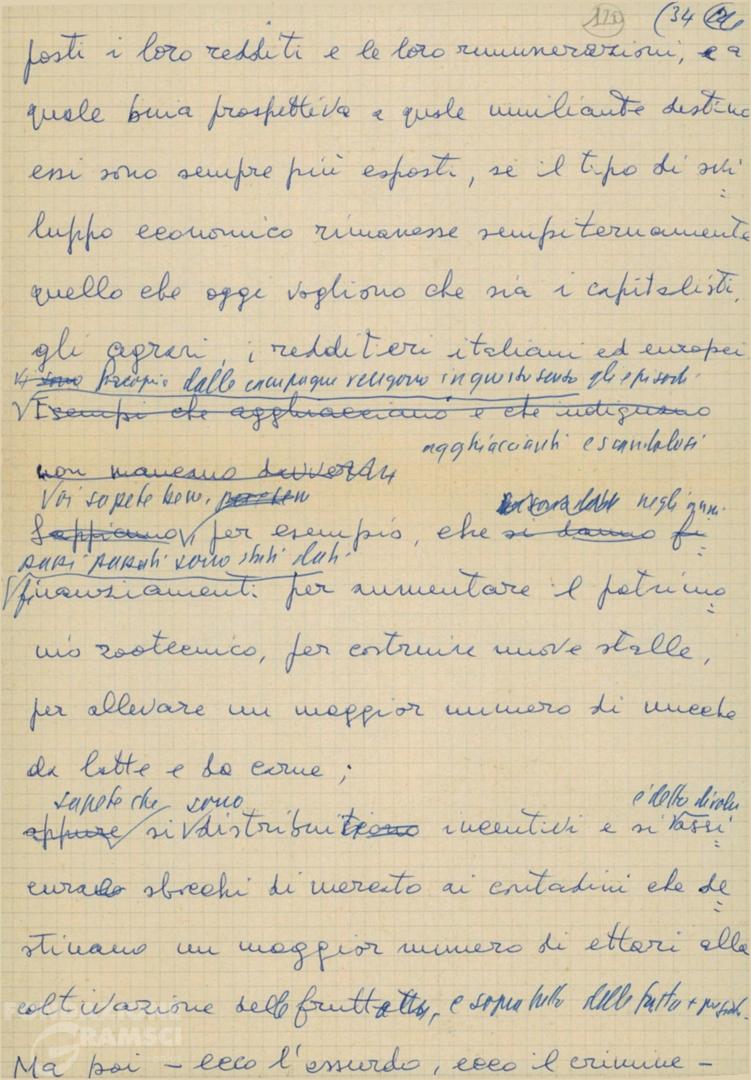 120 (34
posti i loro redditi e le loro rimunerazioni, e a
quale buia prospettiva e quale umiliante destino
essi sono sempre più esposti, se il tipo di svi=
luppo economico rimanesse sempiternamente
quello che oggi vogliono che sia i capitalisti,
gli agrari, i redditieri italiani ed europei
Proprio dalle campagne vengono in questo senso gli episodi
Esempi che agghiacciano e che indignano
agghiaccianti e scandalosi
non mancano davvero
Voi sapete bene, negli anni
Sappiamo, per esempio, che si danno fi=
passati sono stati dati
finanziamenti per aumentare il patrimo=
nio zootecnico, per costruire nuove stalle,
per allevare un maggior numero di mucche
da latte e da carne;
sapete che sono è detto di voler
oppure si distribuiti incentivi e si assi=
curano sbocchi di mercato ai contadini che de=
stinano un maggior numero di ettari alla
coltivazione della frutta, e soprattutto della frutta
Ma poi – ecco l'assurdo, ecco il crimine –
FONDAZIONE
GRAMSCI